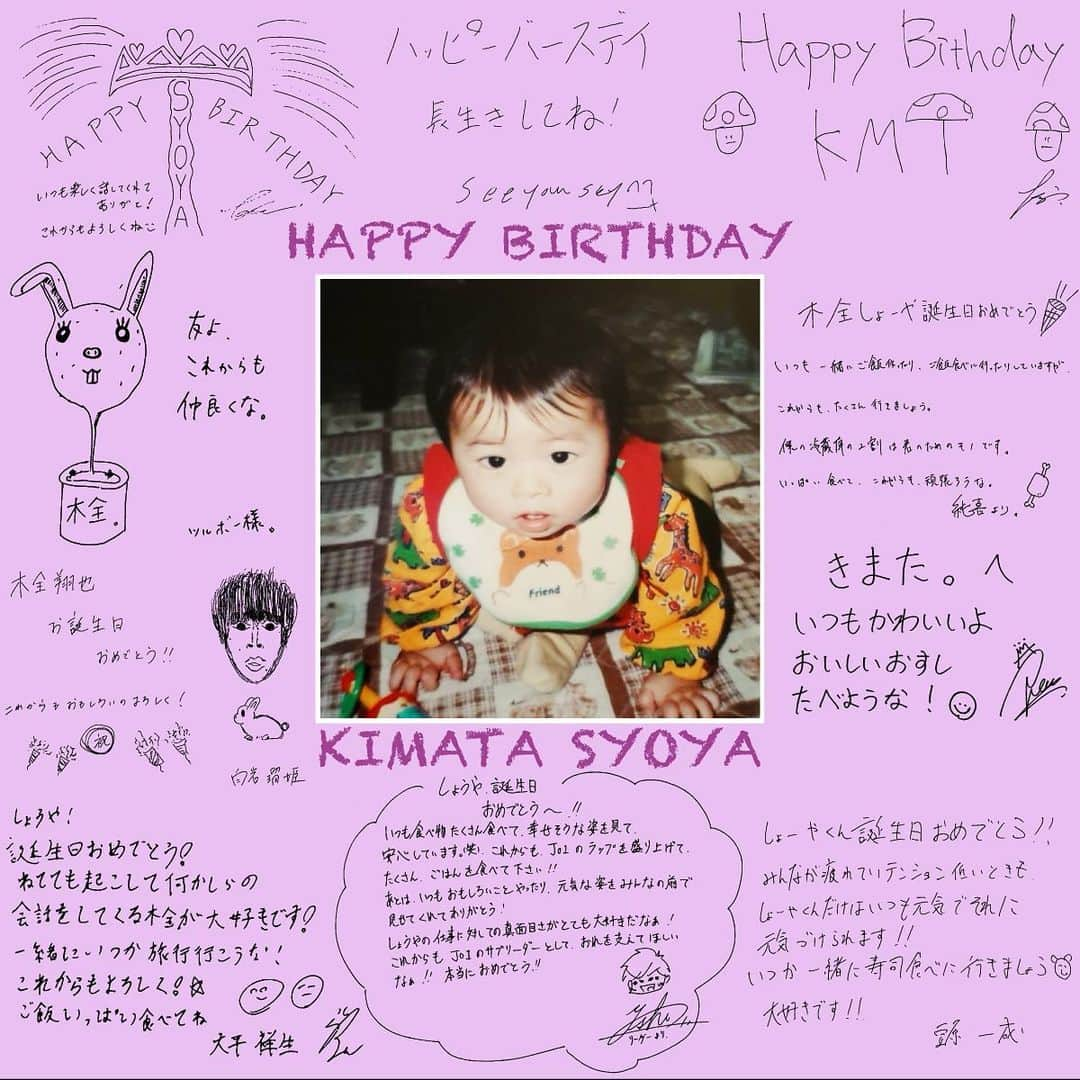 HAPPY
SYOYA
BIRTHDAY
いつも楽しく話してくれて
ありがと！
これからもよろしくねこ
ハッピーバースデイ
長生きしてね！
see you sky
Happy Bithday
KMT
HAPPY BIRTHDAY
友よ、
これからも
仲良くな。
木全。
ツルボー様。
Friend
木全しょーや誕生日おめでとう
いつも一緒にご飯作ったり、ご飯食べに行ったりしていますが、
これからも、たくさん行きましょう。
俺の冷蔵庫の2割は君のためのモノです。
いっぱい食べて、これからも、頑張ろうな。
純喜より。
きまた。へ
いつもかわいいよ
おいしいおすし
たべような！
木全翔也
お誕生日
おめでとう!!
これからもおもしろいのよろしく！
祝
白岩瑠姫
KIMATA SYOYA
しょうや！
誕生日おめでとう！
ねてても起こして何かしらの
会話をしてくる木全が大好きです！
一緒にいつか旅行行こうな！
これからもよろしく！☆
ご飯いっぱい食べてね
大平祥生
しょうや、誕生日
おめでとう〜!!
いつも食べ物たくさん食べて、幸せそうな姿を見て、
安心しています。笑) これからも、JO1のラップを盛り上げて、
たくさん、ごはんを食べて下さい!!
あとは、いつもおもしろいことやったり、元気な姿をみんなの前で
見せてくれてありがとう！
しょうやの仕事に対しての真面目さがとても大好きだなぁ！
これからもJO1のサブリーダーとして、おれを支えてほしい
なぁ!! 本当におめでとう!!
リーダーより、
しょーやくん誕生日おめでとう!!
みんなが疲れていてテンション低いときも
しょーやくんだけはいつも元気でそれに
元気づけられます!!
いつか一緒に寿司食べに行きましょう
大好きです!!